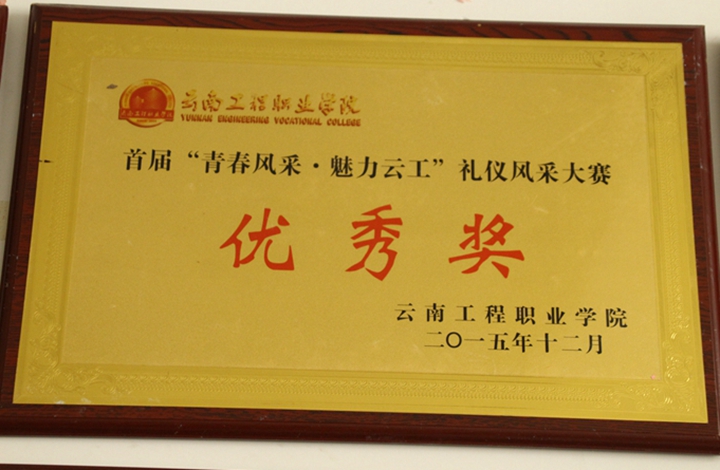 云南工程职业学院
YUNNAN ENGINEERING VOCATIONAL COLLEGE
首届“青春风采·魅力云工”礼仪风采大赛
优秀奖
云南工程职业学院
二〇一五年十二月